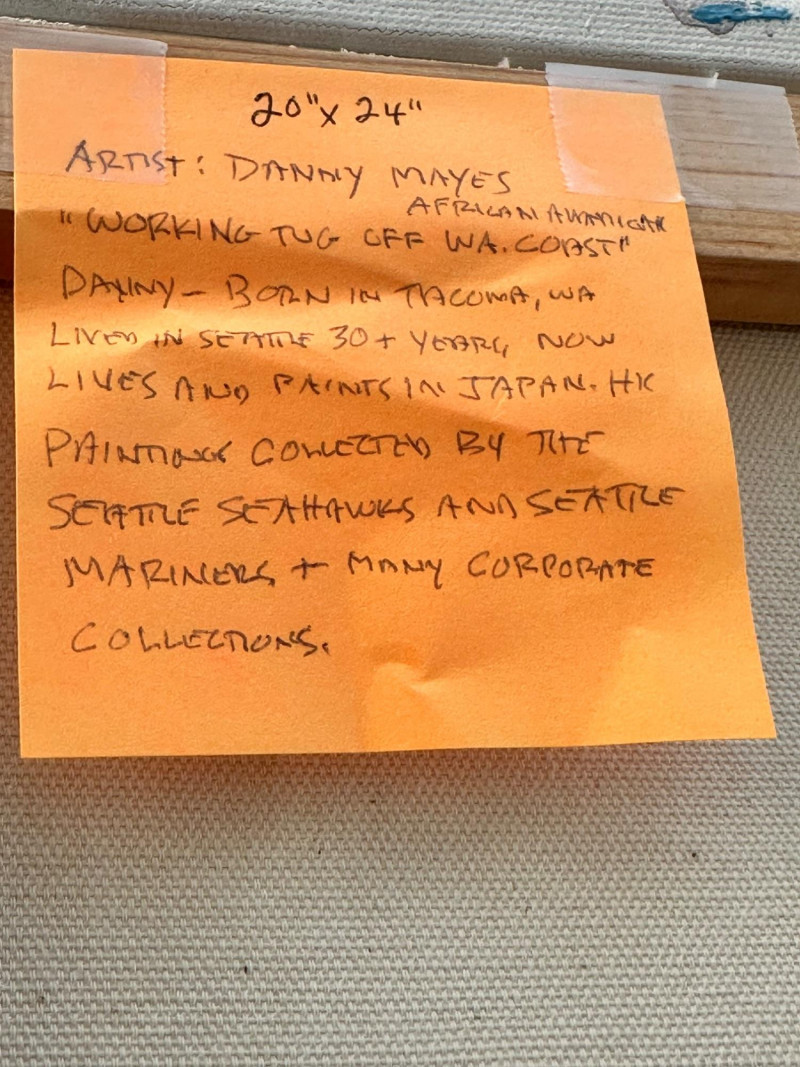 20" x 24"
ARTIST: DANNY MAYES
AFRICAN AMERICAN
"WORKING TUG OFF WA. COAST"
DANNY - BORN IN TACOMA, WA
LIVED IN SEATTLE 30+ YEARS, NOW
LIVES AND PAINTS IN JAPAN. HIS
PAINTINGS COLLECTED BY THE
SEATTLE SEAHAWKS AND SEATTLE
MARINERS + MANY CORPORATE
COLLECTIONS.